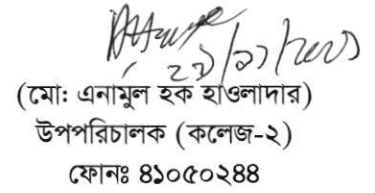 (মো: এনামুল হক হাওলাদার)
উপপরিচালক (কলেজ-২)
ফোনঃ ৪১০৫০২৪৪